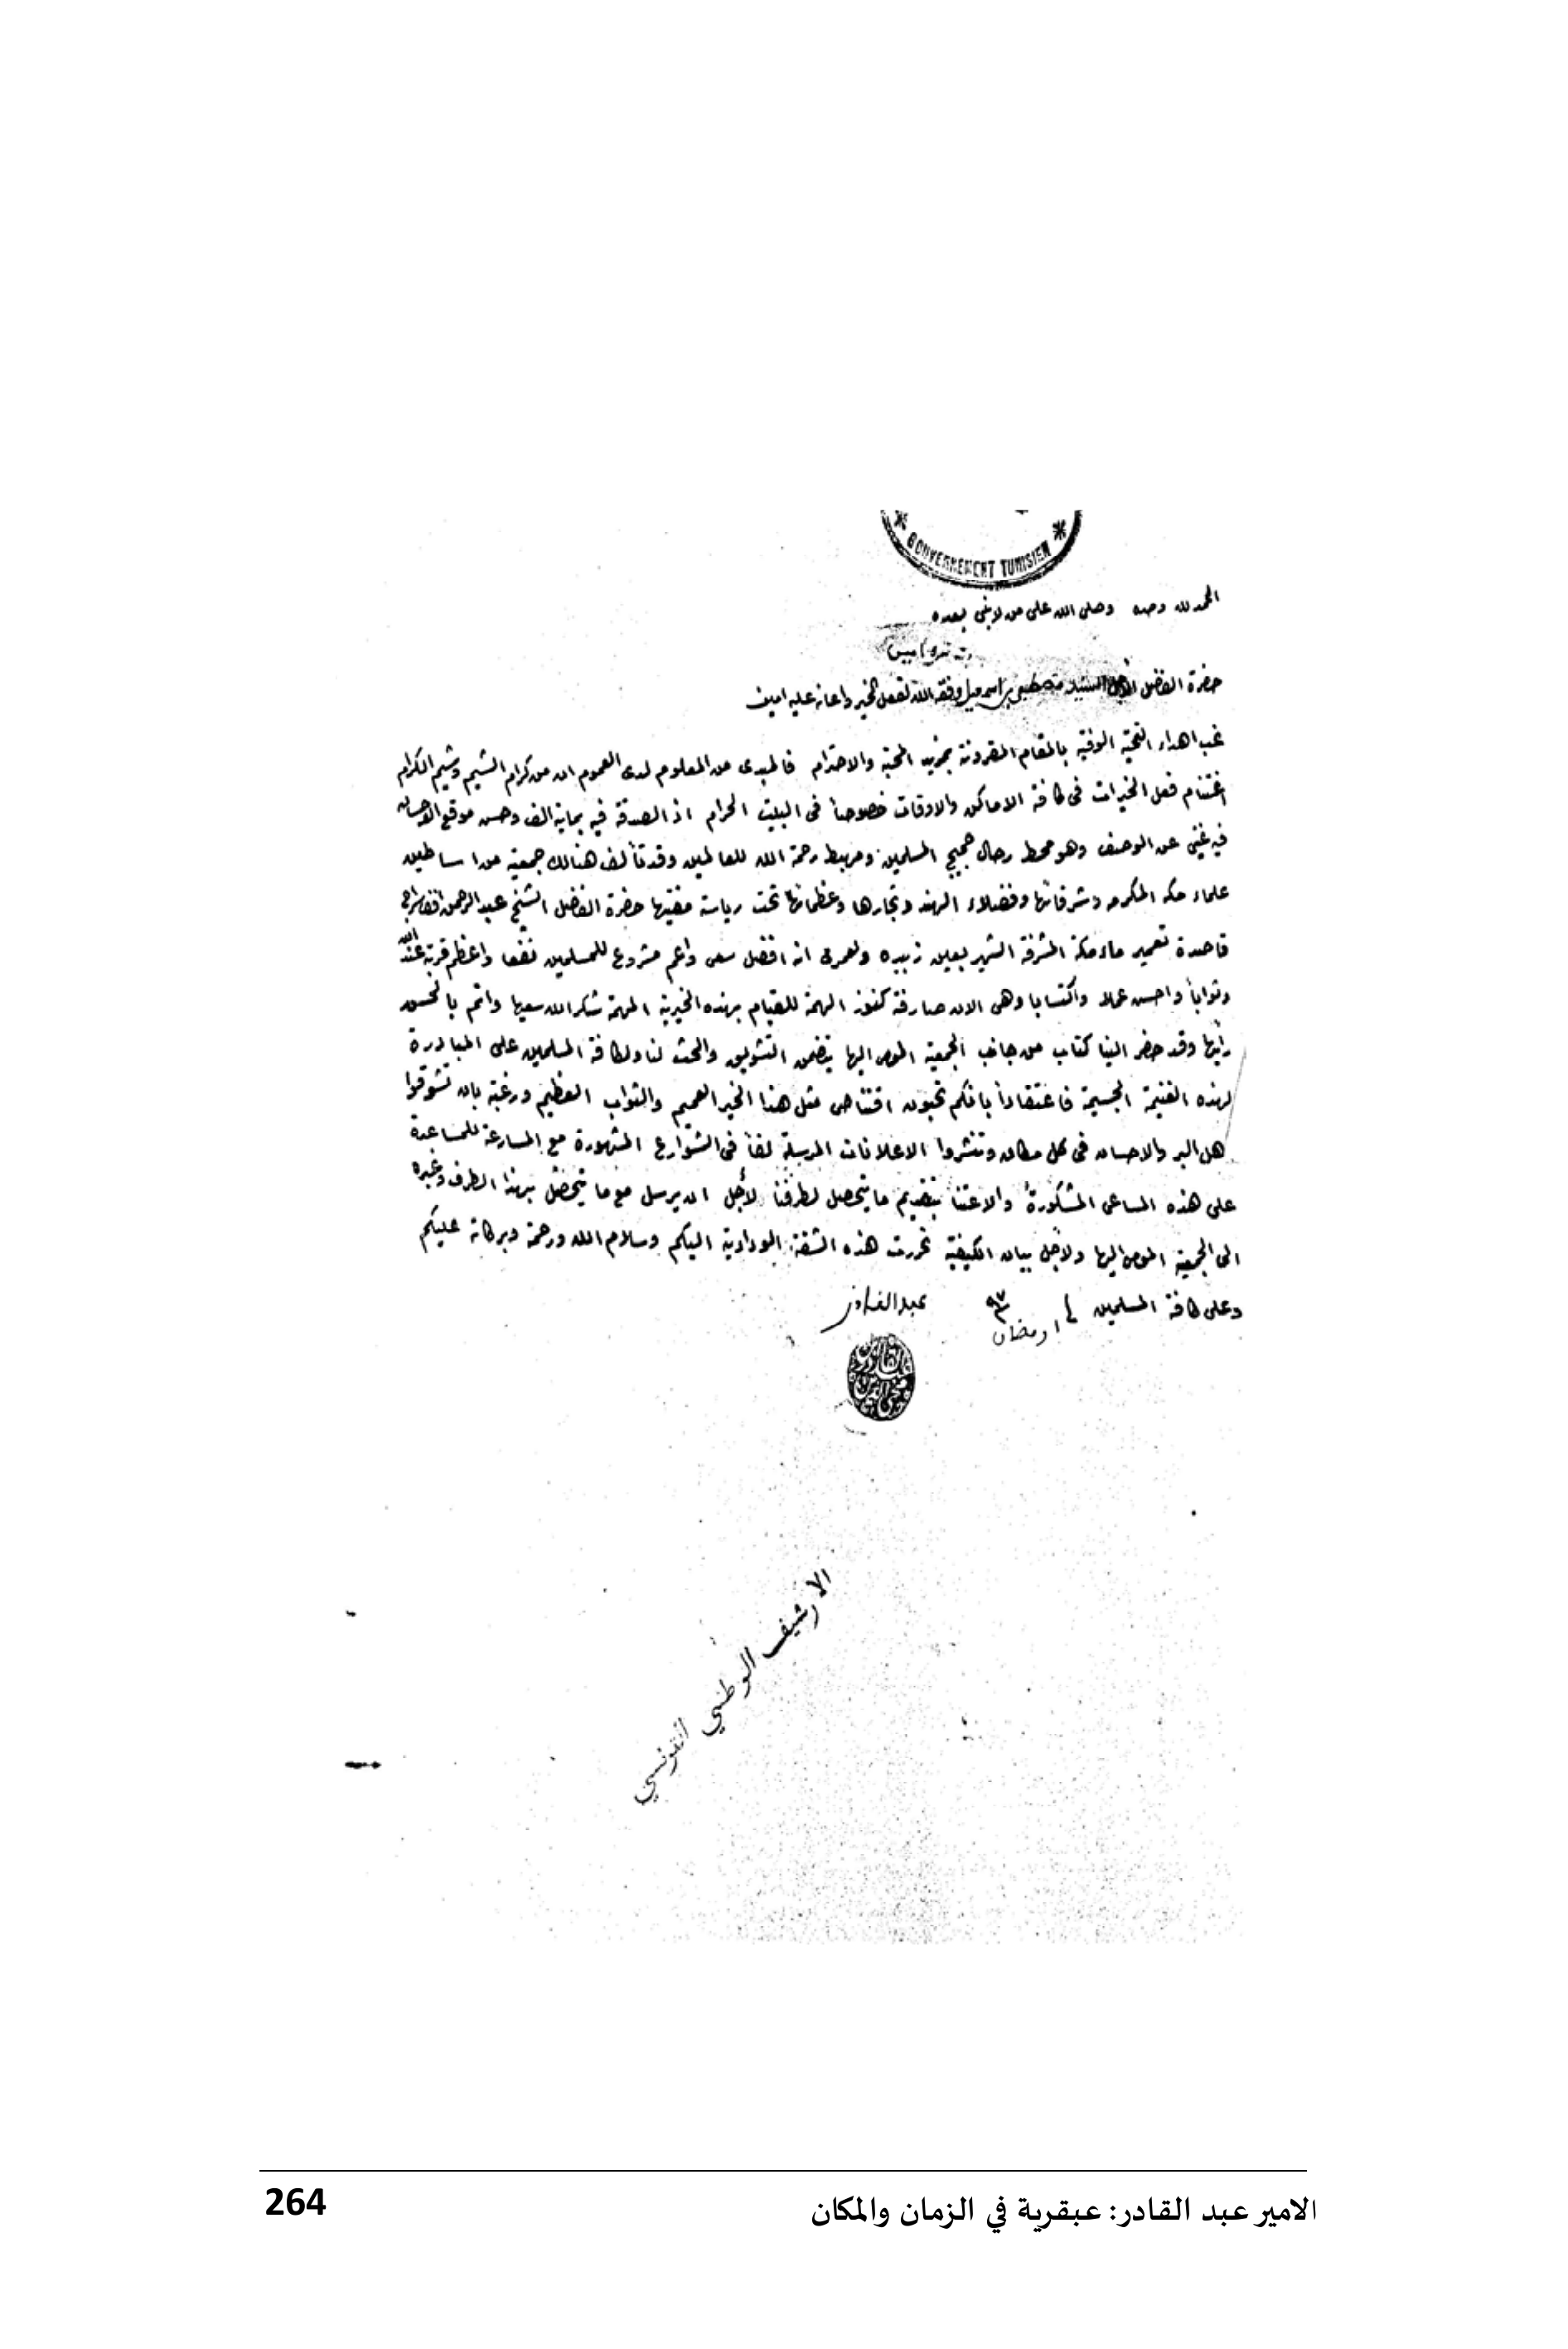 GOUVERNEMENT TUNISIEN
الحمد لله وحده وصلى الله على من لا نبي بعده
حضرة الفاضل الأجل السيد مصطفى بن اسمعيل وفقه الله لفعل الخير واعانه عليه امين
غب اهداء التحية الوفية بالمقام المقرونة بمزيد المحبة والاحترام فالمبدى من المعلوم لدى العموم ان من كرام الشيم وشيم الكرام
اغتنام فعل الخيرات فى كافة الاماكن والاوقات خصوصا فى البيت الحرام اذ الصدقة فيه بماية الف وحسن موقع الاحسان
فيه غنى عن الوصف وهو محط رحال حجيج المسلمين ومهبط رحمة الله للعالمين وقد تألف هنالك جمعية من اساطين
علماء مكه المكرمه وشرفائها وفضلاء الهند وتجارها وعظمائها تحت رياسة مفتيها حضرة الفاضل الشيخ عبد الرحمن افندى سراج
قاصدة تعمير ماء مكة المشرفة الشهير بعين زبيده ولعمرى انه افضل سعى واعم مشروع للمسلمين نفعا واعظم قربة عند الله
وثوابا واحسن عملا واكتسابا وهى الان صارفة كنوز الهمة للقيام بهذه الخيرية المهمة شكر الله سعيها واتم بالحسن
رأيها وقد حضر الينا كتاب من جانب الجمعية المومى اليها يتضمن التشويق والحث لنا ولكافة المسلمين على المبادرة
لهذه الغنيمة الجسيمة فاعتقادا بانكم تحبون اقتناص مثل هذا الخير العميم والثواب العظيم ورغبة بان تشوقوا
هل البر والاحسان فى كل مكان وتنشروا الاعلانات المرسلة لفا فى الشوارع المشهورة مع المسارعة للمساعدة
على هذه المساعى المشكورة والاعتنا بتقديم ما يتحصل لطرفنا لأجل ان يرسل مع ما يتحصل بهذا الطرف وغيره
الى الجمعية المومى اليها ولاجل بيان الكيفية تحررت هذه الشقة الودادية اليكم وسلام الله ورحمته وبركاته عليكم
وعلى كافة المسلمين رمضان ٩٣ عبد القادر
الارشيف الوطني التونسي
الامير عبد القادر: عبقرية في الزمان والمكان 264